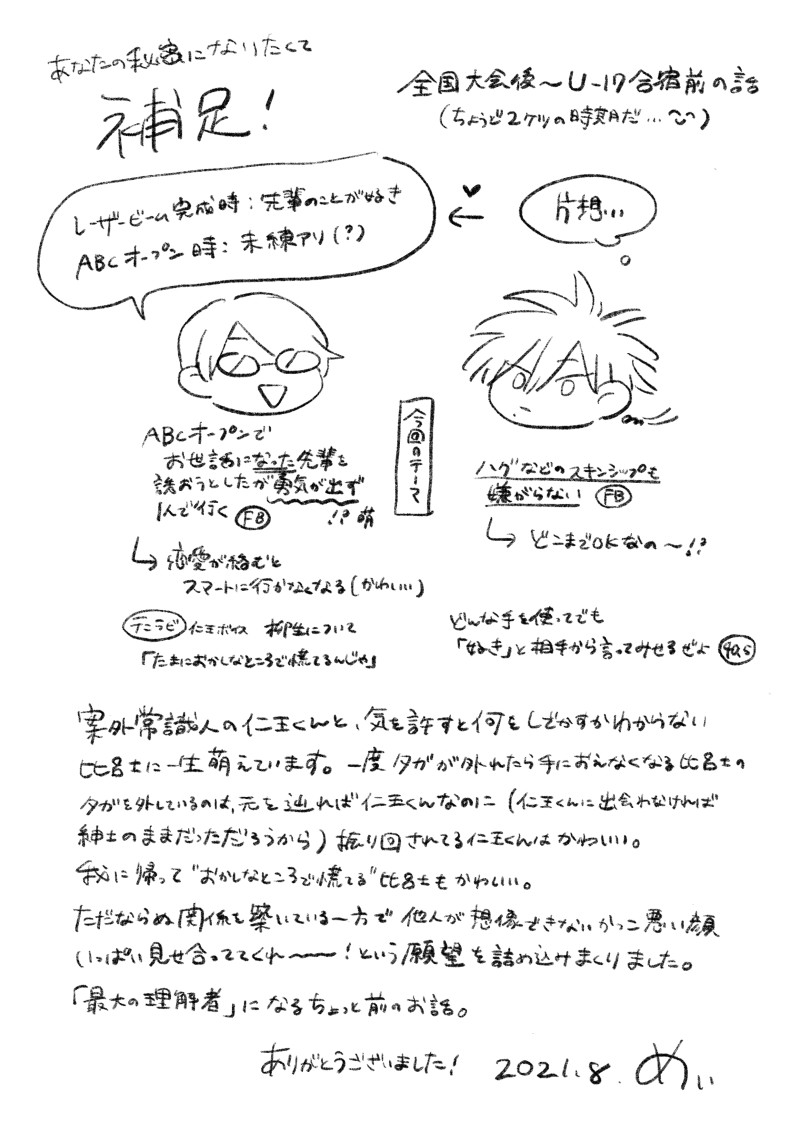 あなたの秘密になりたくて
補足!
全国大会後〜U-17合宿前の話
(ちょうど2ヶ月の時期だ…)
レーザービーム完成時:先輩のことが好き
ABCオープン時:未練アリ(?)
片想…
ABCオープンで
お世話になった先輩を
誘おうとしたが勇気が出ず
1人で行く FB !?萌
↳恋愛が絡むと
スマートに行かなくなる(かわいい…)
テニラビ 仁王ボイス 柳生について
「たまにおかしなところで慌てるんじゃ」
今回のテーマ
ハグなどのスキンシップも
嫌がらない FB
↳どこまでOKなの〜!?
どんな手を使ってでも
「好き」と相手から言ってみせるぜよ
案外常識人の仁王くんと、気を許すと何をしでかすかわからない
比呂士に一生萌えています。一度タガが外れたら手におえなくなる比呂士の
タガを外しているのは、元を辿れば仁王くんなのに(仁王くんに出会わなければ
紳士のままだっただろうから)振り回されてる仁王くんはかわいい。
我に帰って"おかしなところで慌てる"比呂士もかわいい。
ただならぬ関係を築いている一方で他人が想像できないかっこ悪い顔
いっぱい見せ合っててくれ〜〜!という願望を詰め込みまくりました。
「最大の理解者」になるちょっと前のお話。
ありがとうございました! 2021.8. めい